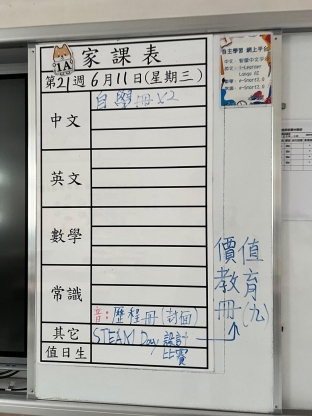 家課表
1A
第21週6月11日(星期三)
中文
自學冊X2
英文
數學
常識
音:歷程冊(封面)
其它
STEAM Day 設計
比賽
值日生
價值
教育
冊(九)
自主學習 網上平台